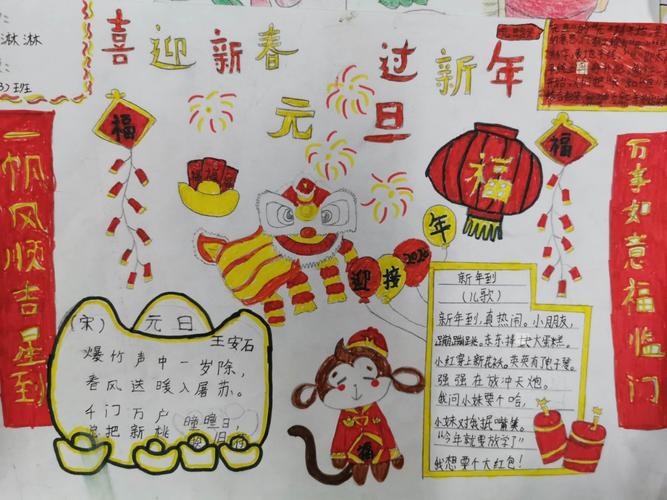 淋淋
班
喜迎新春
过新年
元旦
一帆风顺吉星到
万事如意福临门
福
福
福
迎接2020年
福
(宋) 元日
王安石
爆竹声中一岁除,
春风送暖入屠苏。
千门万户曈曈日,
总把新桃换旧符
新年到
(儿歌)
新年到,真热闹。小朋友,
蹦蹦跳跳。东东捧 大蛋糕。
小红穿上新花袄。英英有了电子琴。
强强在放冲天炮。
我问小妹要个啥,
小妹对我 嘴笑。
“今年就要放学了”
我想要个大红包!